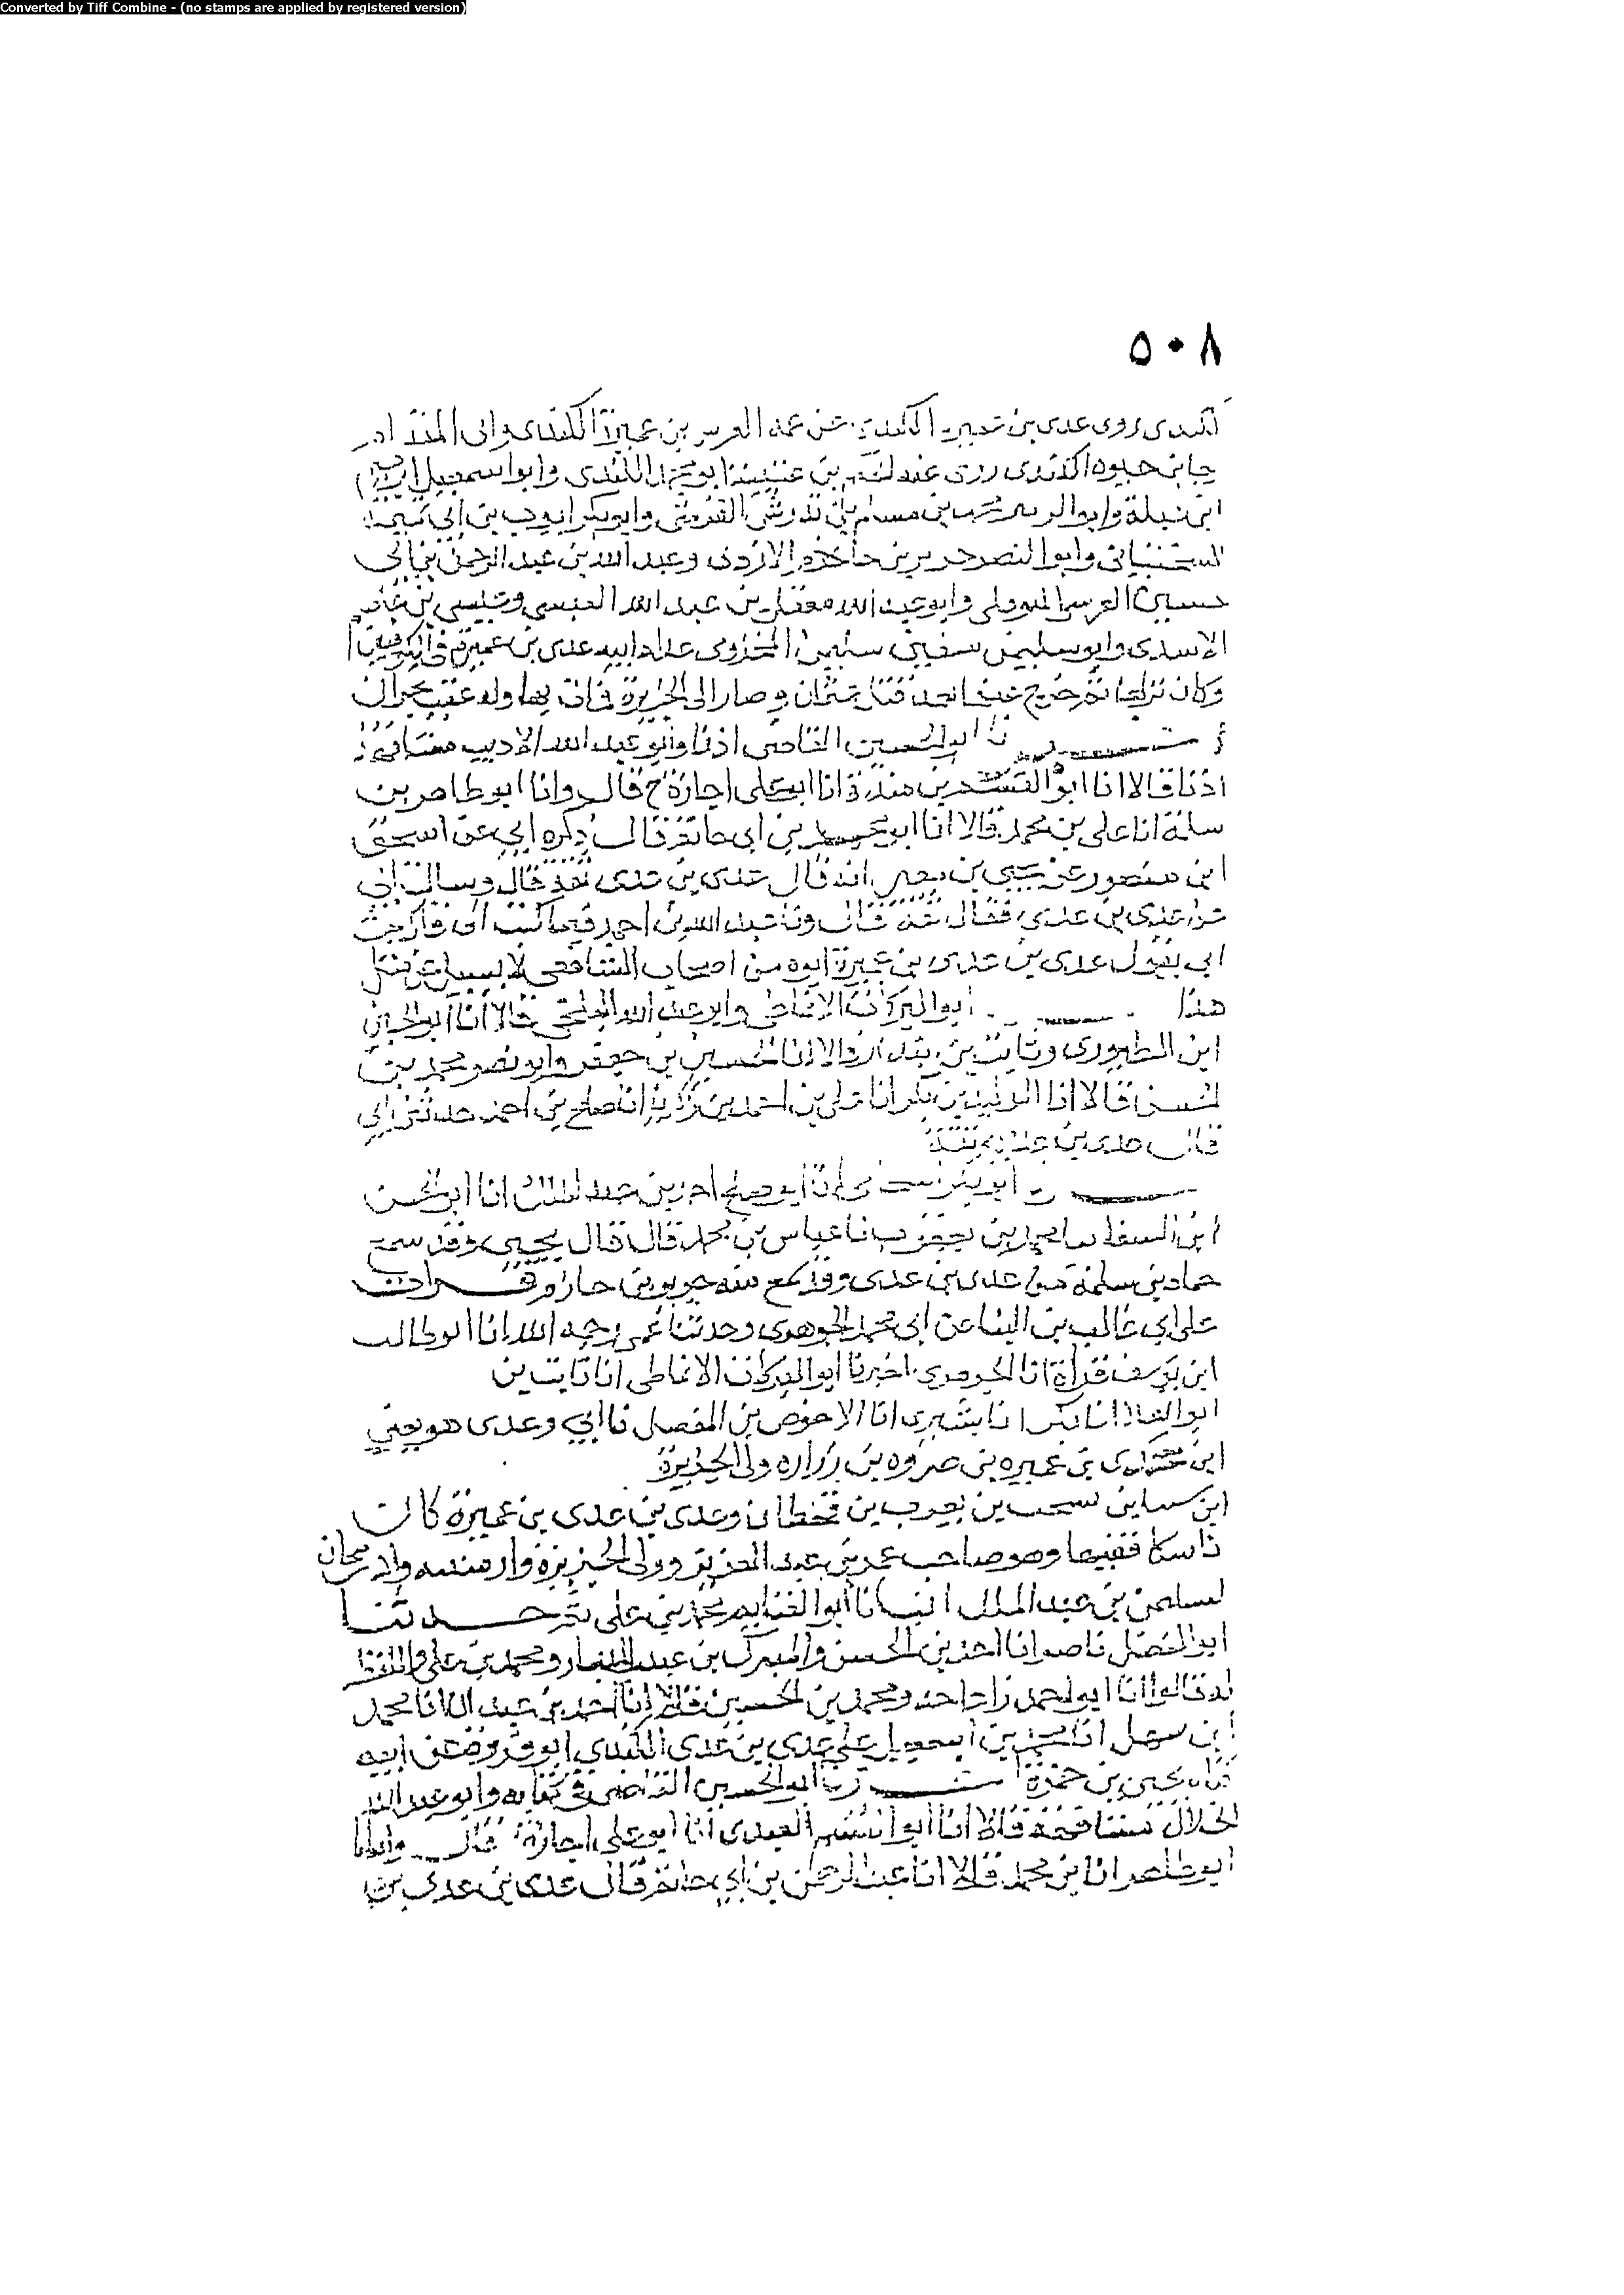 Converted by Tiff Combine - (no stamps are applied by registered version)
٥٠٨
الكندى روى عدى بن عميرة الكندى عن عمه العرس بن عميرة الكندى وابى المقدام
رجا بن حيوه الكندى روى عنه الحكم بن عتيبة ابو محمد الكندى وابو اسمعيل ابرهيم
ابن ابى عبلة وابو الزبير محمد بن مسلم بن تدرس القرشى وابو بكر ايوب بن ابى تميمة
السختيانى وابو النصر جرير بن حازم الازدى وعبد الله بن عبد الرحمن بن ابى
حسين القرشى النوفلى وابو عبد الله معقل بن عبد الله العبسى وعيسى بن عاصم
الاسدى وابو سليمن سيف بن سليمن المخزومى عداد ابيه عدى بن عميرة فى الكوفيين
وكان نزلها ثم خرج عنها بعد قتل عثمان وصار الى الجزيرة فمات بها وله عقب بحران
نا ابو الحسين القاضى اذنا وابو عبد الله الاديب مشافهة
اذنا قالا انا ابو القسم بن مندة انا ابو على اجازة ح قال وانا ابو طاهر بن
سلمة انا على بن محمد قالا انا ابو محمد بن ابى حاتم قال ذكره ابى عن اسحق
ابن منصور عن يحيى بن معين انه قال عدى بن عدى ثقة قال وسالت ابى
عن عدى بن عدى فقال ثقة قال ونا عبد الله بن احمد فيما كتب الى قال سمعت
ابى يقول عدى بن عدى بن عميرة ابوه من اصحاب النبى صلى لا يسأل عن مثل
هذا ابو البركات الانماطى وابو عبد الله البلخى قالا انا ابو الحسين
ابن الطيورى وثابت بن بندار قالا انا الحسين بن جعفر وابو نصر محمد بن
الحسن قالا انا الوليد بن بكر انا على بن احمد بن زكريا انا صلح بن احمد حدثنى ابى
قال عدى بن عدى ثقة
انا ابو صلح احمد بن عبد الملك انا ابو الحسن
ابن السقا نا محمد بن يعقوب نا عباس بن محمد قال قال يحيى وقد سمع
حماد بن سلمة من عدى بن عدى وقد سمع منه جرير بن حازم قرات
على ابي غالب بن البنا عن ابى محمد الجوهرى وحدثنا عمى رحمه الله انا ابو طالب
ابن يوسف قراة انا الجوهرى اخبرنا ابو البركات الانماطى انا ثابت بن
ابو العلا انا بكر انا بشرى انا الاحوص بن المفضل نا ابي وعدى هو يعني
ابن عدى بن عميره بن فروه بن زراره ولى الجزيرة
ابن سبا بن يشجب بن يعرب بن قحطان وعدى بن عدى بن عميرة كان
ناسكا فقيها وهو صاحب عمر بن عبد العزيز وولى الجزيرة وارمينيه واذربيجان
لسليمن بن عبد الملك انبانا ابو الغنايم محمد بن على ثم حدثنا
ابو الفضل نا صر انا احمد بن الحسن والمبرك بن عبد الجبار ومحمد بن على واللفظ
له قالوا انا ابو احمد زاد احمد ومحمد بن الحسين قالا انا احمد بن عبدان انا محمد
ابن سهل انا محمد بن اسمعيل على عدى بن عدى الكندي ابو فروة عن ابيه
كناه يحيى بن حمزة نا ابو الحسين القاضى فى كتابه وابو عبد الله
الخلال مشافهة قالا انا ابو القسم العبدى انا ابو على اجازة قال وانا
ابو طاهر انا بن محمد قالا انا عبد الرحمن بن ابي حاتم قال عدى بن عدى بن